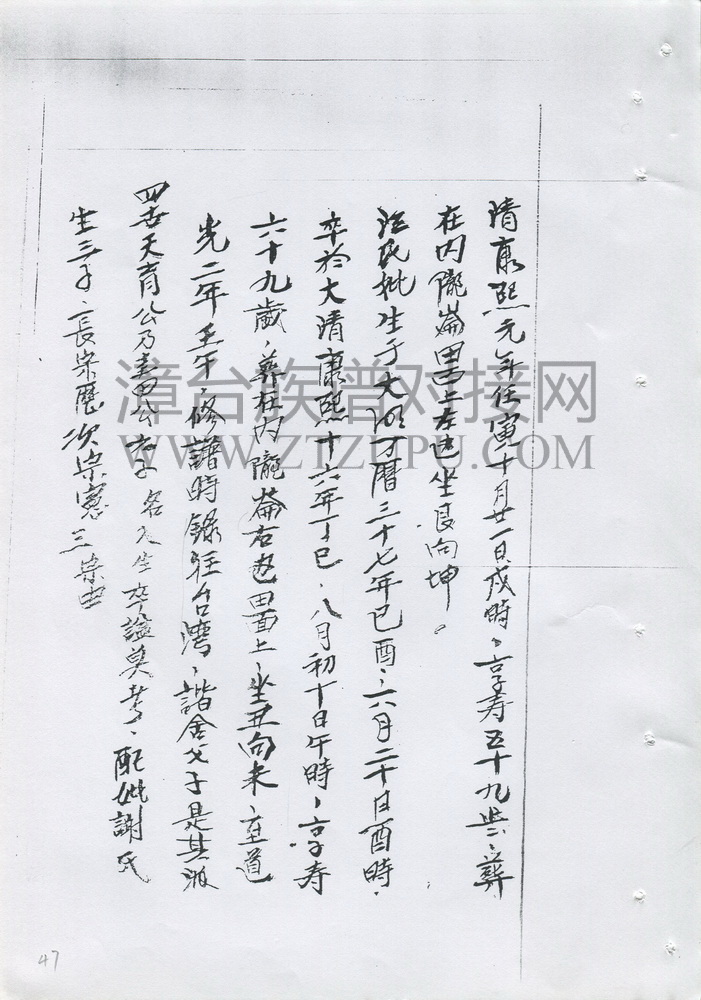 清康熙元年任寅十月廿一日戌時，享寿五十九歲，葬
在内隴崙田面上左边坐艮向坤。
江氏妣生于大明万曆三十七年己酉，六月二十日酉時，
卒於大清康熙十六年丁巳，八月初十日午時，享寿
六十九歲，葬在内隴崙右边田面上，坐丑向未，至道
光二年壬午，修譜時錄駐台湾，諧舍父子是其派
四世天育公乃公之子名久生卒諡莫考，配妣謝氏
生三子，長宗歷次宗憲三宗由
漳台族谱对接网
WWW.ZTZUPU.COM
47